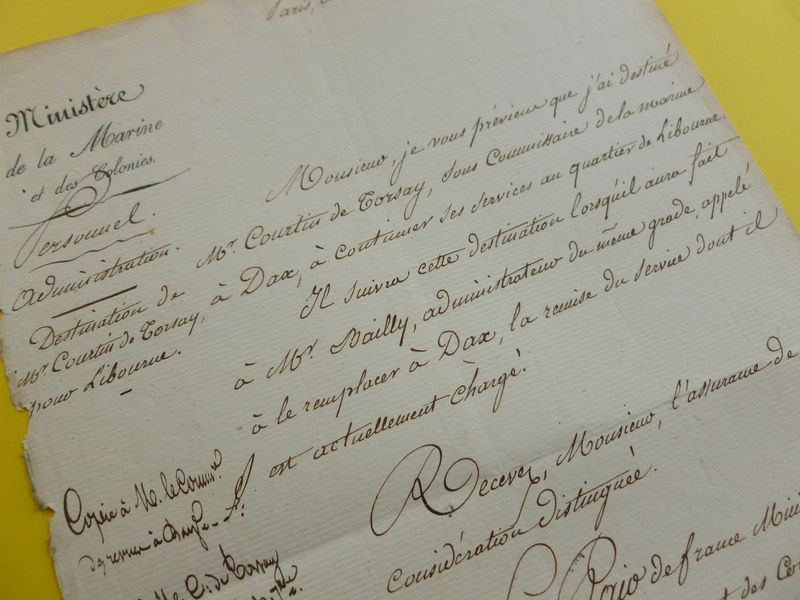 Paris,
Ministère
de la Marine
et des Colonies.
Personnel.
Administration.
Destination de
Mr. Courtin de Torsay,
pour Libourne.
Monsieur, je vous préviens que j'ai destiné
Mr. Courtin de Torsay, sous Commissaire de la marine
à Dax, à continuer ses services au quartier de Libourne.
Il suivra cette destination lorsqu'il aura fait
à Mr. Bailly, administrateur du même grade, appelé
à le remplacer à Dax, la remise du service dont il
est actuellement chargé.
Recevez, Monsieur, l'assurance de
Considération distinguée.
de france Mini
et des Co
Copie à M. le Comm.re
à M. C. de Torsay